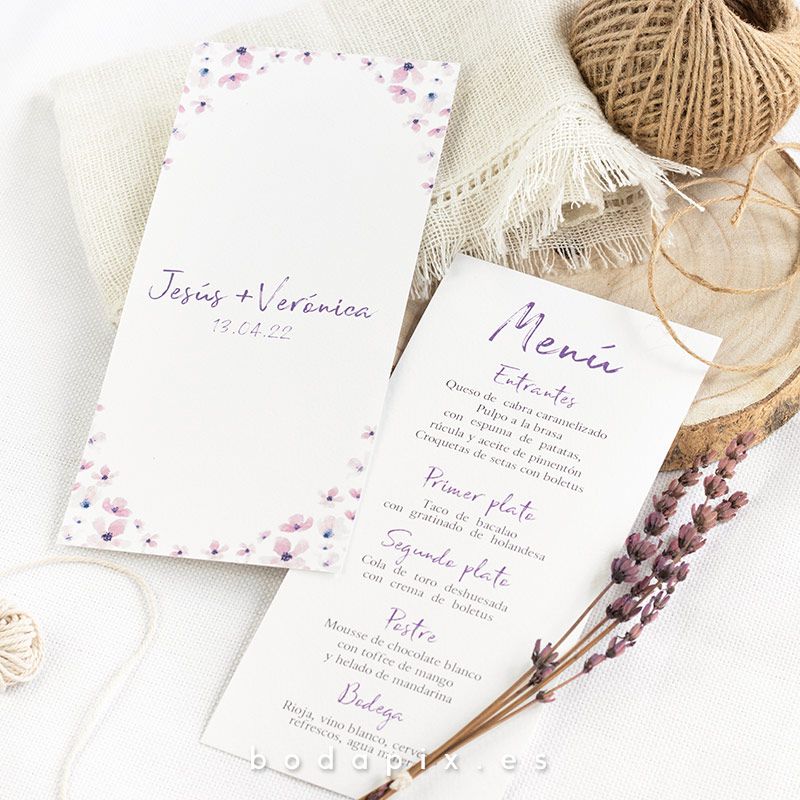 Jesús + Verónica
13.04.22
Menú
Entrantes
Queso de cabra caramelizado
Pulpo a la brasa
con espuma de patatas,
rúcula y aceite de pimentón
Croquetas de setas con boletus
Primer plato
Taco de bacalao
con gratinado de holandesa
Segundo plato
Cola de toro deshuesada
con crema de boletus
Postre
Mousse de chocolate blanco
con toffee de mango
y helado de mandarina
Bodega
Rioja, vino blanco,
refrescos, agua
bodapix.es